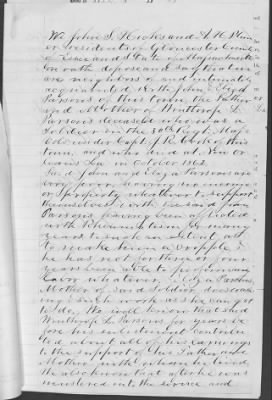 We John S. Hooks and A. H. 
residents of Gloucester County
of Essex and State of Massachusetts
on oath depose and say that we
are neighbors of and intimately
acquainted with John & Eliza
Parsons of this town, the Father
and Mother of Winthrop L.
Parsons deceased who was a
Soldier in the 30th Regt Mass
Vols under Capt J. R. Cook of this
town, and who died at New Or
leans La in October 1862.
Said John and Eliza Parsons are
very poor having no means
or property whatever to support
themselves with the said John
Parsons having been afflicted
with Rheumatism for many
years to such an extent as
to make him a cripple &
he has not for three or four
years been able to perform any
labor whatever, Eliza Parsons
Mother of said Soldier
such work as she can get
to do. We well know that said
Winthrop L. Parsons for years be
fore his enlistment contribu
ted about all of his earnings
to the support of his Father and
Mother with whom he lived
We also know that after he was
mustered into the service and